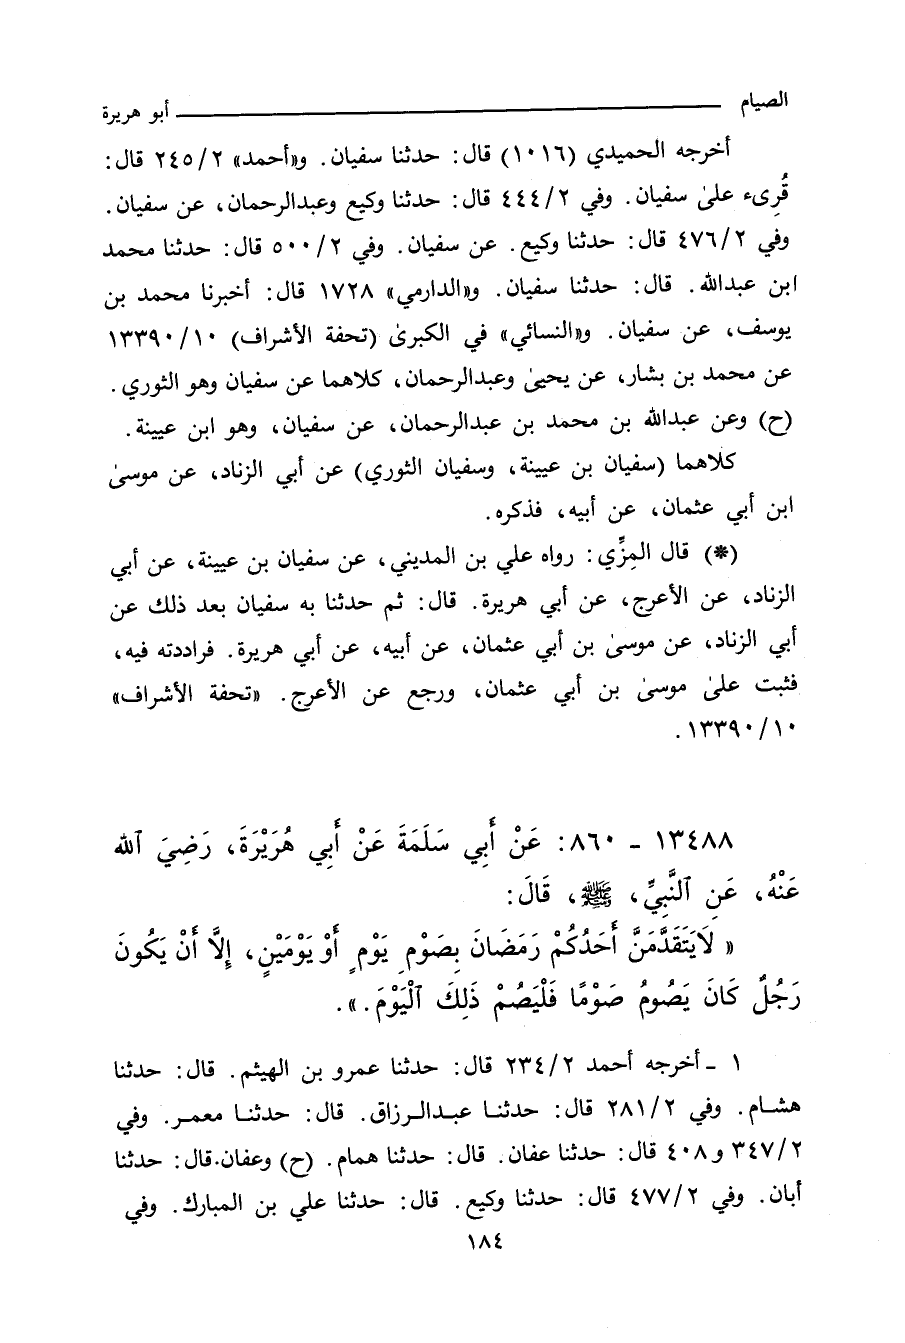 الصيام ــــــــــــــــــــــــــــــــــــ أبو هريرة
أخرجه الحميدي (١٠١٦) قال: حدثنا سفيان. و«أحمد» ٢/ ٢٤٥ قال:
قُرِىء علىٰ سفيان. وفي ٢/ ٤٤٤ قال: حدثنا وكيع وعبدالرحمان، عن سفيان.
وفي ٢/ ٤٧٦ قال: حدثنا وكيع. عن سفيان. وفي ٢/ ٥٠٠ قال: حدثنا محمد
ابن عبدالله. قال: حدثنا سفيان. و«الدارمي» ١٧٢٨ قال: أخبرنا محمد بن
يوسف، عن سفيان. و«النسائي» في الكبرىٰ (تحفة الأشراف) ١٠/ ١٣٣٩٠
عن محمد بن بشار، عن يحيىٰ وعبدالرحمان، كلاهما عن سفيان وهو الثوري.
(ح) وعن عبدالله بن محمد بن عبدالرحمان، عن سفيان، وهو ابن عيينة.
كلاهما (سفيان بن عيينة، وسفيان الثوري) عن أبي الزناد، عن موسىٰ
ابن أبي عثمان، عن أبيه، فذكره.
(*) قال المِزِّي: رواه علي بن المديني، عن سفيان بن عيينة، عن أبي
الزناد، عن الأعرج، عن أبي هريرة. قال: ثم حدثنا به سفيان بعد ذلك عن
أبي الزناد، عن موسىٰ بن أبي عثمان، عن أبيه، عن أبي هريرة. فراددته فيه،
فثبت علىٰ موسىٰ بن أبي عثمان، ورجع عن الأعرج. «تحفة الأشراف»
١٠/ ١٣٣٩٠.
١٣٤٨٨ - ٨٦٠: عَنْ أَبِي سَلَمَةَ عَنْ أَبِي هُرَيْرَةَ، رَضِيَ ٱلله
عَنْهُ، عَنِ ٱلنَّبِيِّ، ﷺ، قَالَ:
« لَايَتَقَدَّمَنَّ أَحَدُكُمْ رَمَضَانَ بِصَوْمِ يَوْمٍ أَوْ يَوْمَيْنِ، إِلَّا أَنْ يَكُونَ
رَجُلٌ كَانَ يَصُومُ صَوْمًا فَلْيَصُمْ ذَلِكَ ٱلْيَوْمَ.».
١ - أخرجه أحمد ٢/ ٢٣٤ قال: حدثنا عمرو بن الهيثم. قال: حدثنا
هشام. وفي ٢/ ٢٨١ قال: حدثنا عبدالرزاق. قال: حدثنا معمر. وفي
٢/ ٣٤٧ و ٤٠٨ قال: حدثنا عفان. قال: حدثنا همام. (ح) وعفان. قال: حدثنا
أبان. وفي ٢/ ٤٧٧ قال: حدثنا وكيع. قال: حدثنا علي بن المبارك. وفي
١٨٤